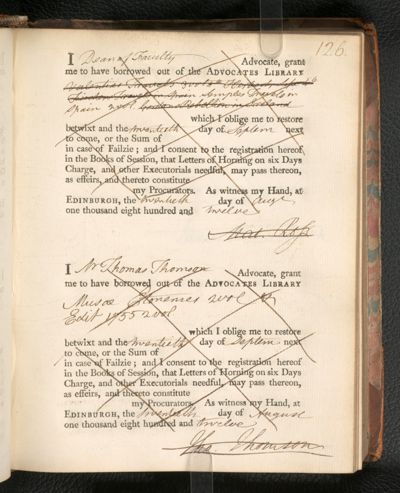 126.
I Dean of Faculty Advocate, grant
me to have borrowed out of the ADVOCATES LIBRARY
Valentias Travels 3 vol
Travels in Spain Semples Travels in
Spain 2 vol Rebellion in Scotland
which I oblige me to restore
betwixt and the twentieth day of Septem next
to come, or the Sum of
in case of Failzie ; and I consent to the registration hereof
in the Books of Session, that Letters of Horning on six Days
Charge, and other Executorials needful, may pass thereon,
as effeirs, and thereto constitute
my Procurators. As witness my Hand, at
EDINBURGH, the twentieth day of Augt
one thousand eight hundred and twelve
Ross
I Mr Thomas Thomson Advocate, grant
me to have borrowed out of the ADVOCATES LIBRARY
2 vol
Edit 1755 2 vol
which I oblige me to restore
betwixt and the twentieth day of Septem next
to come, or the Sum of
in case of Failzie ; and I consent to the registration hereof
in the Books of Session, that Letters of Horning on six Days
Charge, and other Executorials needful, may pass thereon,
as effeirs, and thereto constitute
my Procurators. As witness my Hand, at
EDINBURGH, the twentieth day of August
one thousand eight hundred and twelve
Tho. Thomson